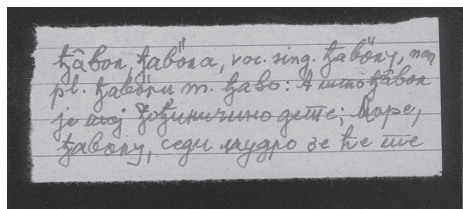 ђâвол, ђавŏла, voc. sing. ђавŏлу, nom
pl. ђавŏли m. ђаво: А што ђâвол
је мој дете; Море,
ђаволу, седи мудро зе ће те